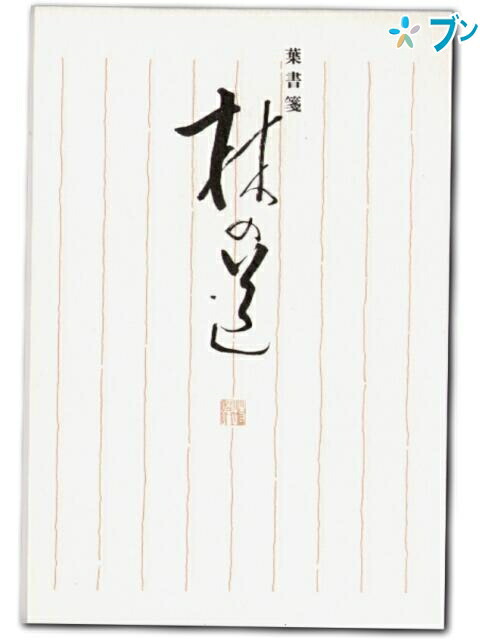 葉書箋
林の道
ブン